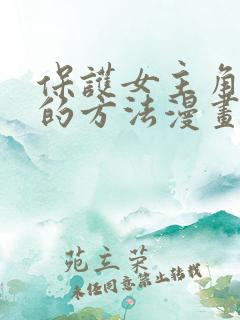 保護女主角
的方法漫畫
苑立荣
未经同意禁止转载